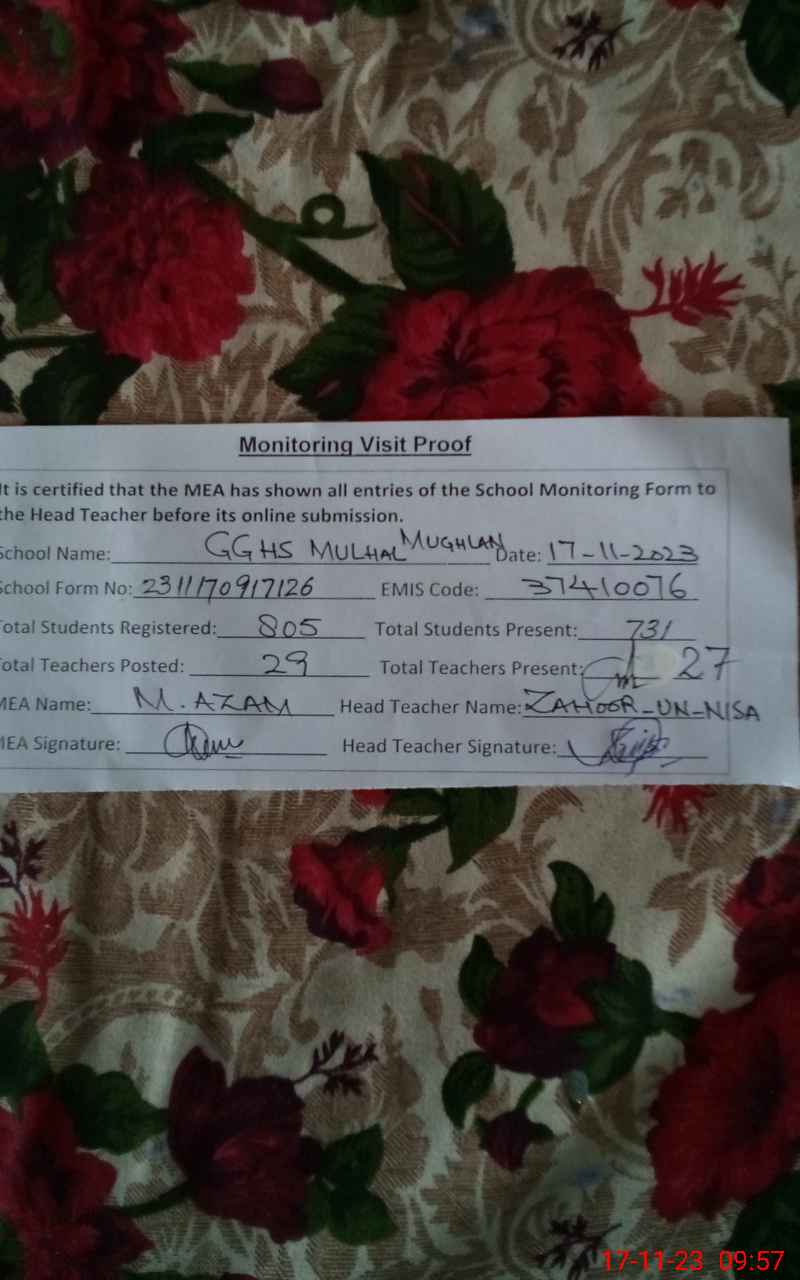 Monitoring Visit Proof
It is certified that the MEA has shown all entries of the School Monitoring Form to
the Head Teacher before its online submission.
School Name: GGHS MULHAL MUGHLAN Date: 17-11-2023
School Form No: 231117091​7126 EMIS Code: 37410076
Total Students Registered: 805 Total Students Present: 731
Total Teachers Posted: 29 Total Teachers Present: 27
MEA Name: M. AZAM Head Teacher Name: ZAHOOR-UN-NISA
MEA Signature: Head Teacher Signature:
17-11-23 09:57